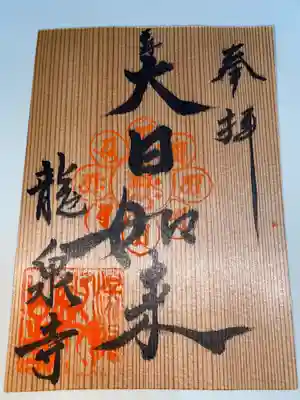 奉拝
大日如来
龍泉寺